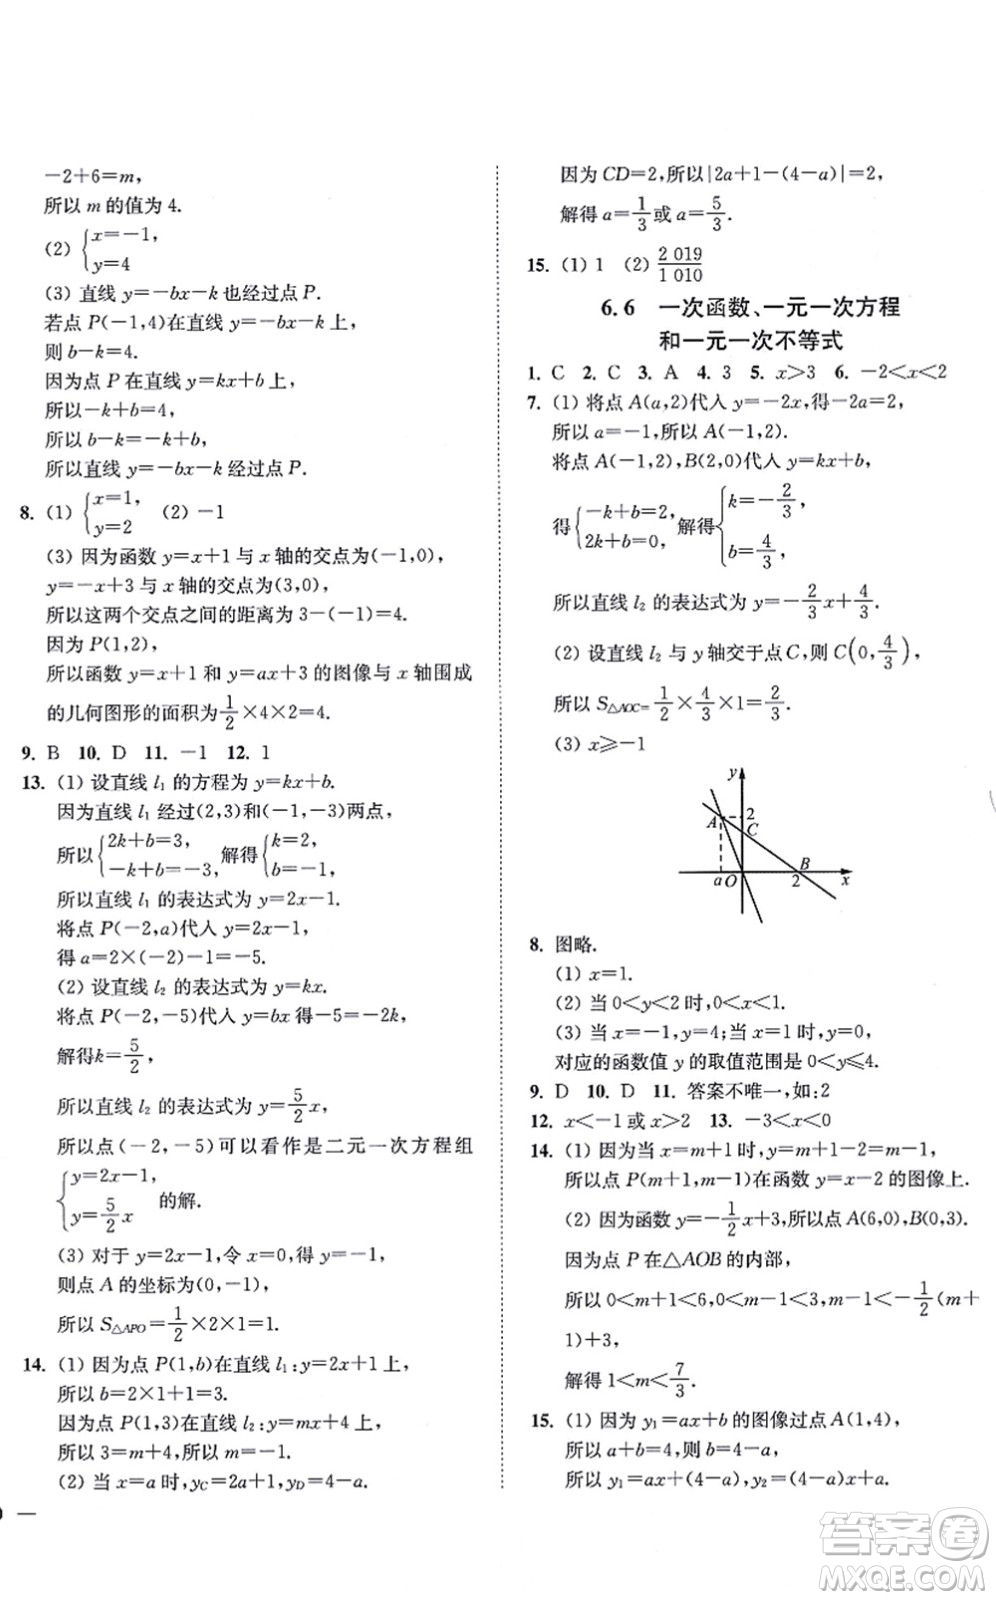 -2+6=m,
所以 m 的值为 4.
(2) {x=-1, y=4
(3) 直线 y=-bx-k 也经过点 P.
若点 P(-1,4)在直线 y=-bx-k 上,
则 b-k=4.
因为点 P 在直线 y=kx+b 上,
所以-k+b=4,
所以 b-k=-k+b,
所以直线 y=-bx-k 经过点 P.
8. (1) {x=1, y=2 (2) -1
(3) 因为函数 y=x+1 与 x 轴的交点为(-1,0),
y=-x+3 与 x 轴的交点为(3,0),
所以这两个交点之间的距离为 3-(-1)=4.
因为 P(1,2),
所以函数 y=x+1 和 y=ax+3 的图像与 x 轴围成
的几何图形的面积为 1/2 ×4×2=4.
9. B 10. D 11. -1 12. 1
13. (1) 设直线 l₁ 的方程为 y=kx+b.
因为直线 l₁ 经过(2,3)和(-1,-3)两点,
所以 {2k+b=3, -k+b=-3, 解得 {k=2, b=-1,
所以直线 l₁ 的表达式为 y=2x-1.
将点 P(-2,a)代入 y=2x-1,
得 a=2×(-2)-1=-5.
(2) 设直线 l₂ 的表达式为 y=kx.
将点 P(-2,-5)代入 y=bx 得-5=-2k,
解得k= 5/2,
所以直线 l₂ 的表达式为 y= 5/2 x,
所以点(-2,-5)可以看作是二元一次方程组
{y=2x-1, y= 5/2 x 的解.
(3) 对于 y=2x-1,令 x=0,解得 y=-1,
则点 A 的坐标为(0,-1),
所以 S△APO= 1/2 ×2×1=1.
14. (1) 因为点 P(1,b)在直线 l₁:y=2x+1 上,
所以 b=2×1+1=3.
因为点 P(1,3)在直线 l₂:y=mx+4 上,
所以 3=m+4,所以 m=-1.
(2) 当 x=a 时,yC=2a+1,yD=4-a.
因为 CD=2,所以|2a+1-(4-a)|=2,
解得 a= 1/3 或 a= 5/3.
15. (1) 1 (2) 2 019/1 010
6.6 一次函数、一元一次方程
和一元一次不等式
1. C 2. C 3. A 4. 3 5. x>3 6. -2<x<2
7. (1) 将点 A(a,2)代入 y=-2x,得-2a=2,
所以 a=-1,所以 A(-1,2).
将点 A(-1,2),B(2,0)代入 y=kx+b,
得 {-k+b=2, 2k+b=0, 解得 {k=- 2/3, b= 4/3,
所以直线 l₂ 的表达式为 y=- 2/3 x+ 4/3.
(2) 设直线 l₂ 与 y 轴交于点 C,则 C(0, 4/3),
所以 S△AOC= 1/2 × 4/3 ×1= 2/3.
(3) x≥-1
y
A 2
C
B
a O 2 x
8. 图略.
(1) x=1.
(2) 当 0<y<2 时,0<x<1.
(3) 当 x=-1,y=4;当 x=1 时,y=0,
对应的函数值 y 的取值范围是 0<y≤4.
9. D 10. D 11. 答案不唯一,如:2
12. x<-1 或 x>2 13. -3<x<0
14. (1) 因为当 x=m+1 时,y=m+1-2=m-1,
所以点 P(m+1,m-1)在函数 y=x-2 的图像上.
(2) 因为函数 y=- 1/2 x+3,所以点 A(6,0),B(0,3).
因为点 P 在△AOB 的内部,
所以 0<m+1<6,0<m-1<3,m-1<- 1/2 (m+
1)+3,
解得 1<m< 7/3.
15. (1) 因为 y₁=ax+b 的图像过点 A(1,4),
所以 a+b=4,则 b=4-a,
所以 y₁=ax+(4-a),y₂=(4-a)x+a.
答案卷
MXQE.COM